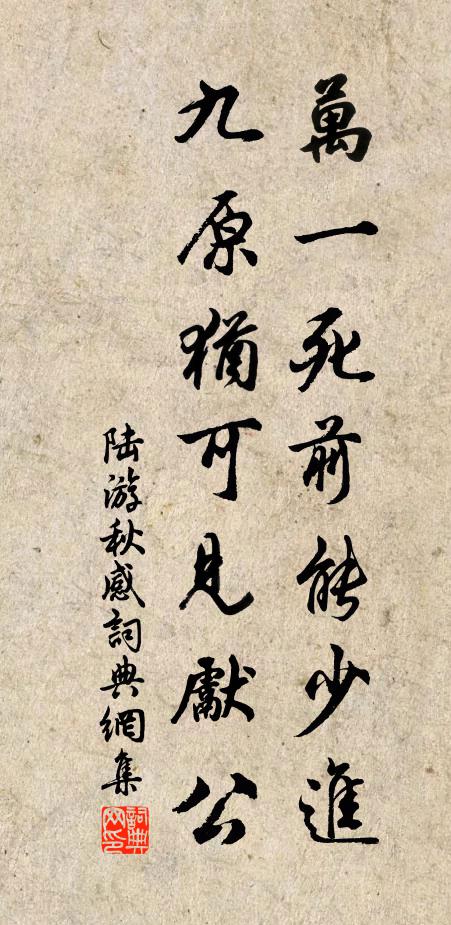 萬一死前能少進
九原猶可見獻公
陆游秋感詞典網集
詞典网印